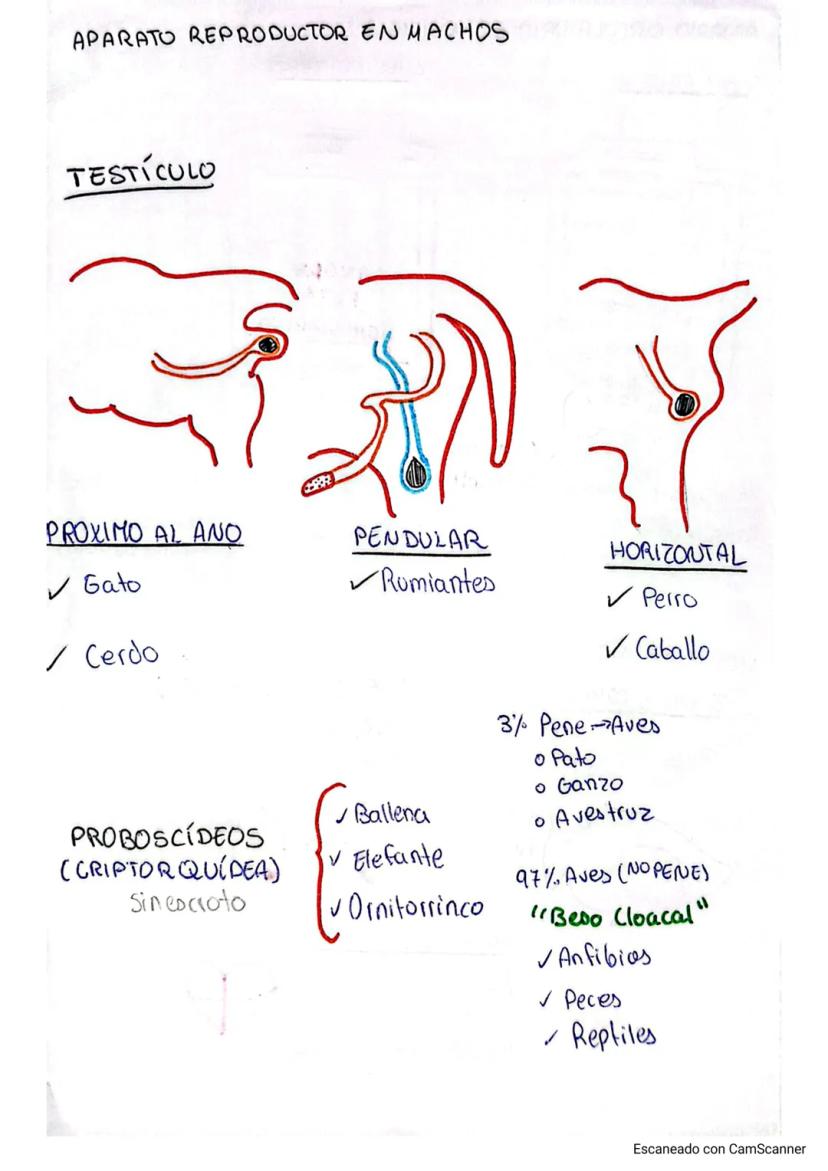 APARATO REPRODUCTOR EN MACHOS
TESTÍCULO
PROXIMO AL ANO
✓ Gato
✓ Cerdo
PENDULAR
✓ Rumiantes
HORIZONTAL
✓ Perro
✓ Caballo
PROBOSCÍDEOS
(CRIPTORQUÍDEA)
Sin escroto
✓ Ballena
✓ Elefante
✓ Ornitorrinco
3% Pene → Aves
o Pato
o Ganzo
o Avestruz
97% Aves (NO PENE)
"Beso Cloacal"
✓ Anfibios
✓ Peces
✓ Reptiles
Escaneado con CamScanner